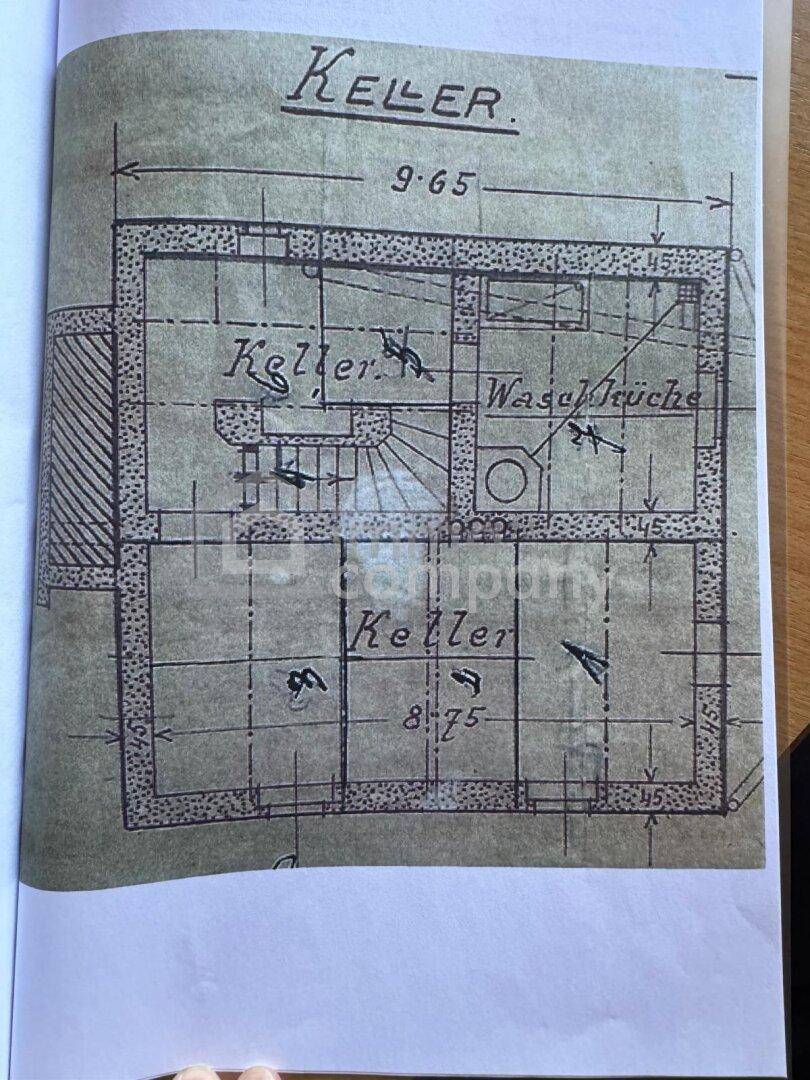 KELLER.
9.65
45
Keller.
Waschküche
45
company
Keller
8.75
45
45
45